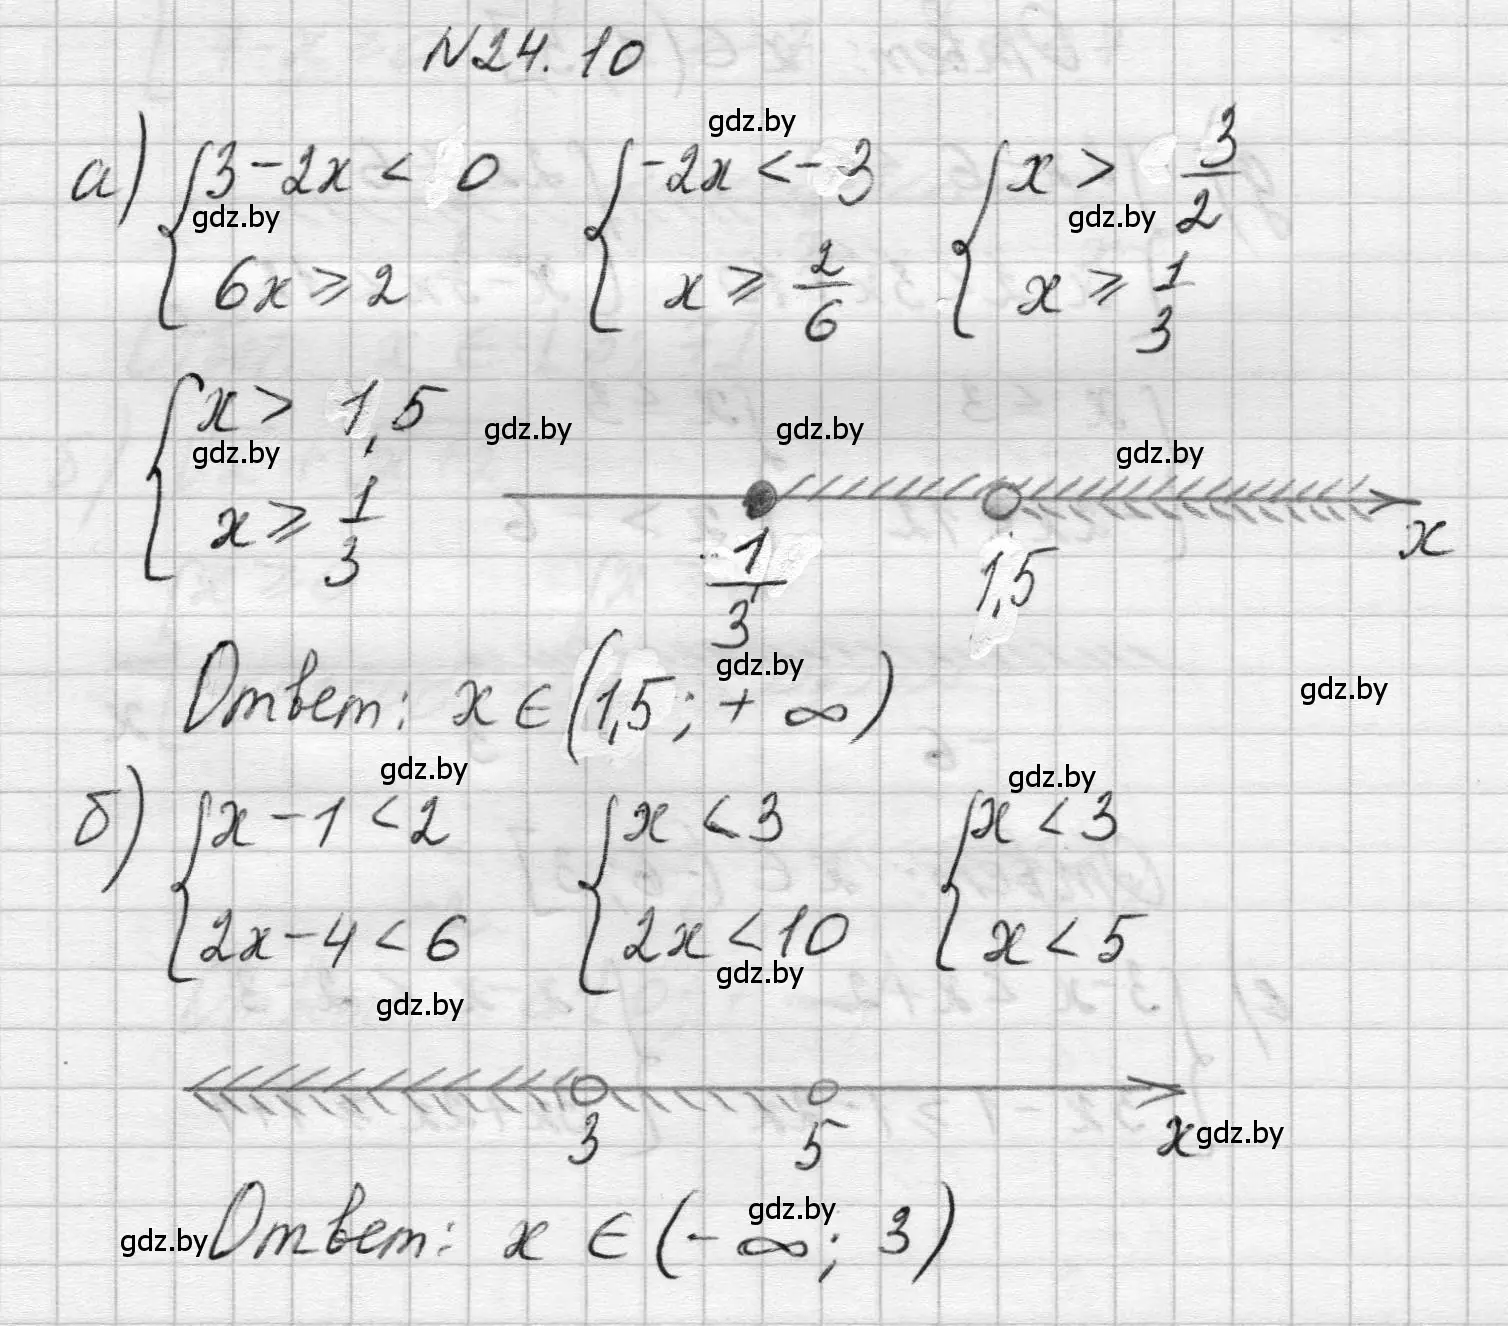 N24.10
gdz.by
а) { 3-2x < 0 { -2x < -3 { x > 3/2
gdz.by gdz.by
6x ⩾ 2 x ⩾ 2/6 x ⩾ 1/3
{ x > 1,5
gdz.by gdz.by gdz.by gdz.by
x ⩾ 1/3
1/3 1,5 x
gdz.by gdz.by
Ответ: x ∈ (1,5; + ∞)
gdz.by gdz.by
б) { x - 1 < 2 { x < 3 { x < 3
2x - 4 < 6 2x < 10 x < 5
gdz.by gdz.by
3 5 x gdz.by
gdz.by gdz.by
Ответ: x ∈ (- ∞; 3)